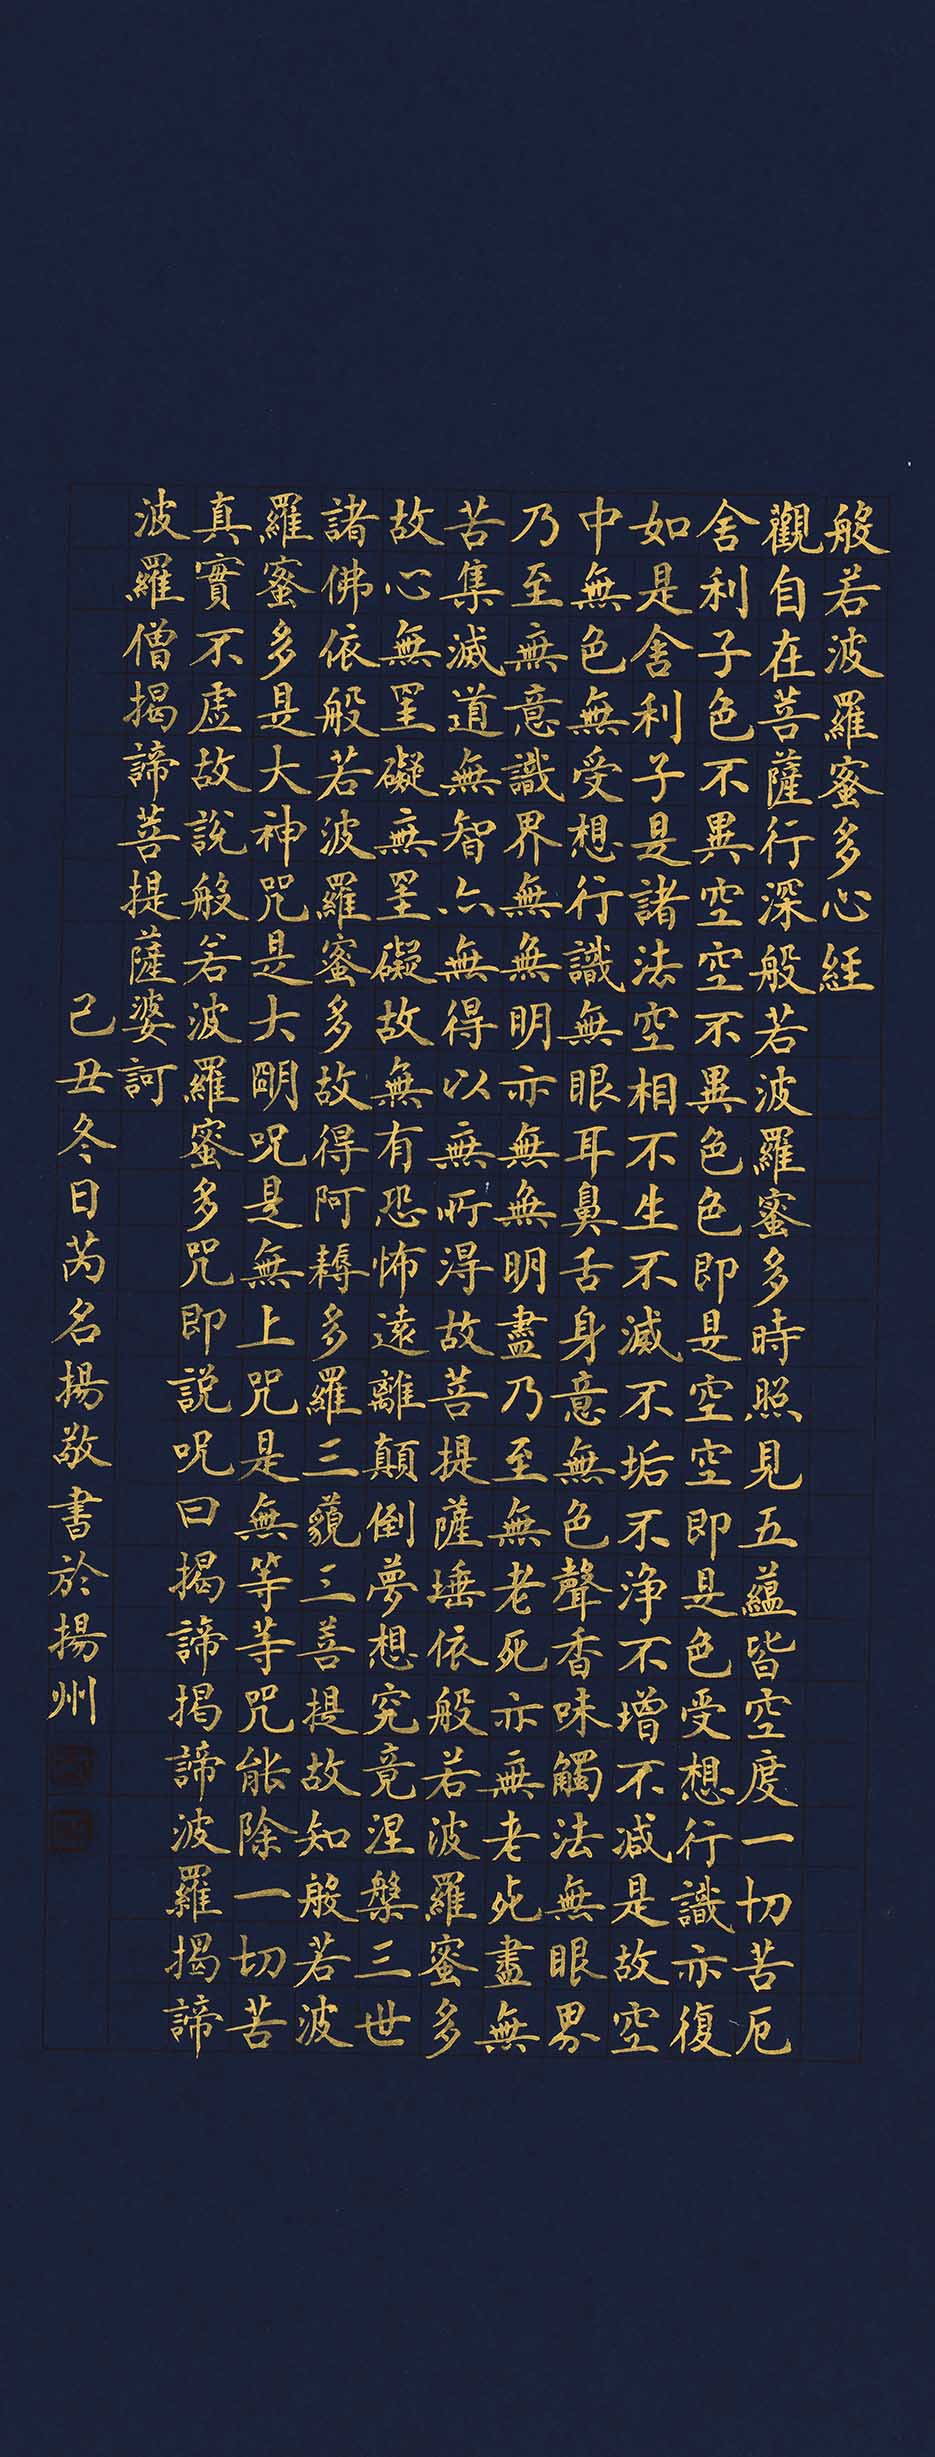 般若波羅蜜多心經
觀自在菩薩行深般若波羅蜜多時照見五蘊皆空度一切苦厄
舍利子色不異空空不異色色即是空空即是色受想行識亦復
如是舍利子是諸法空相不生不滅不垢不净不增不减是故空
中無色無受想行識無眼耳鼻舌身意無色聲香味觸法無眼界
乃至無意識界無無明亦無無明盡乃至無老死亦無老死盡無
苦集滅道無智亦無得以無所得故菩提薩埵依般若波羅蜜多
故心無罣礙無罣礙故無有恐怖遠離顛倒夢想究竟涅槃三世
諸佛依般若波羅蜜多故得阿耨多羅三藐三菩提故知般若波
羅蜜多是大神咒是大明咒是無上咒是無等等咒能除一切苦
真實不虛故說般若波羅蜜多咒即説呪曰揭諦揭諦波羅揭諦
波羅僧揭諦菩提薩婆訶
己丑冬日芮名揚敬書於揚州